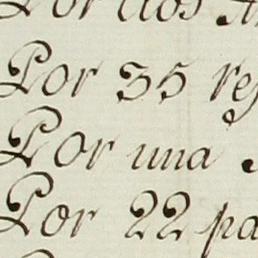 Por dos
Por 35
Por una
Por 22